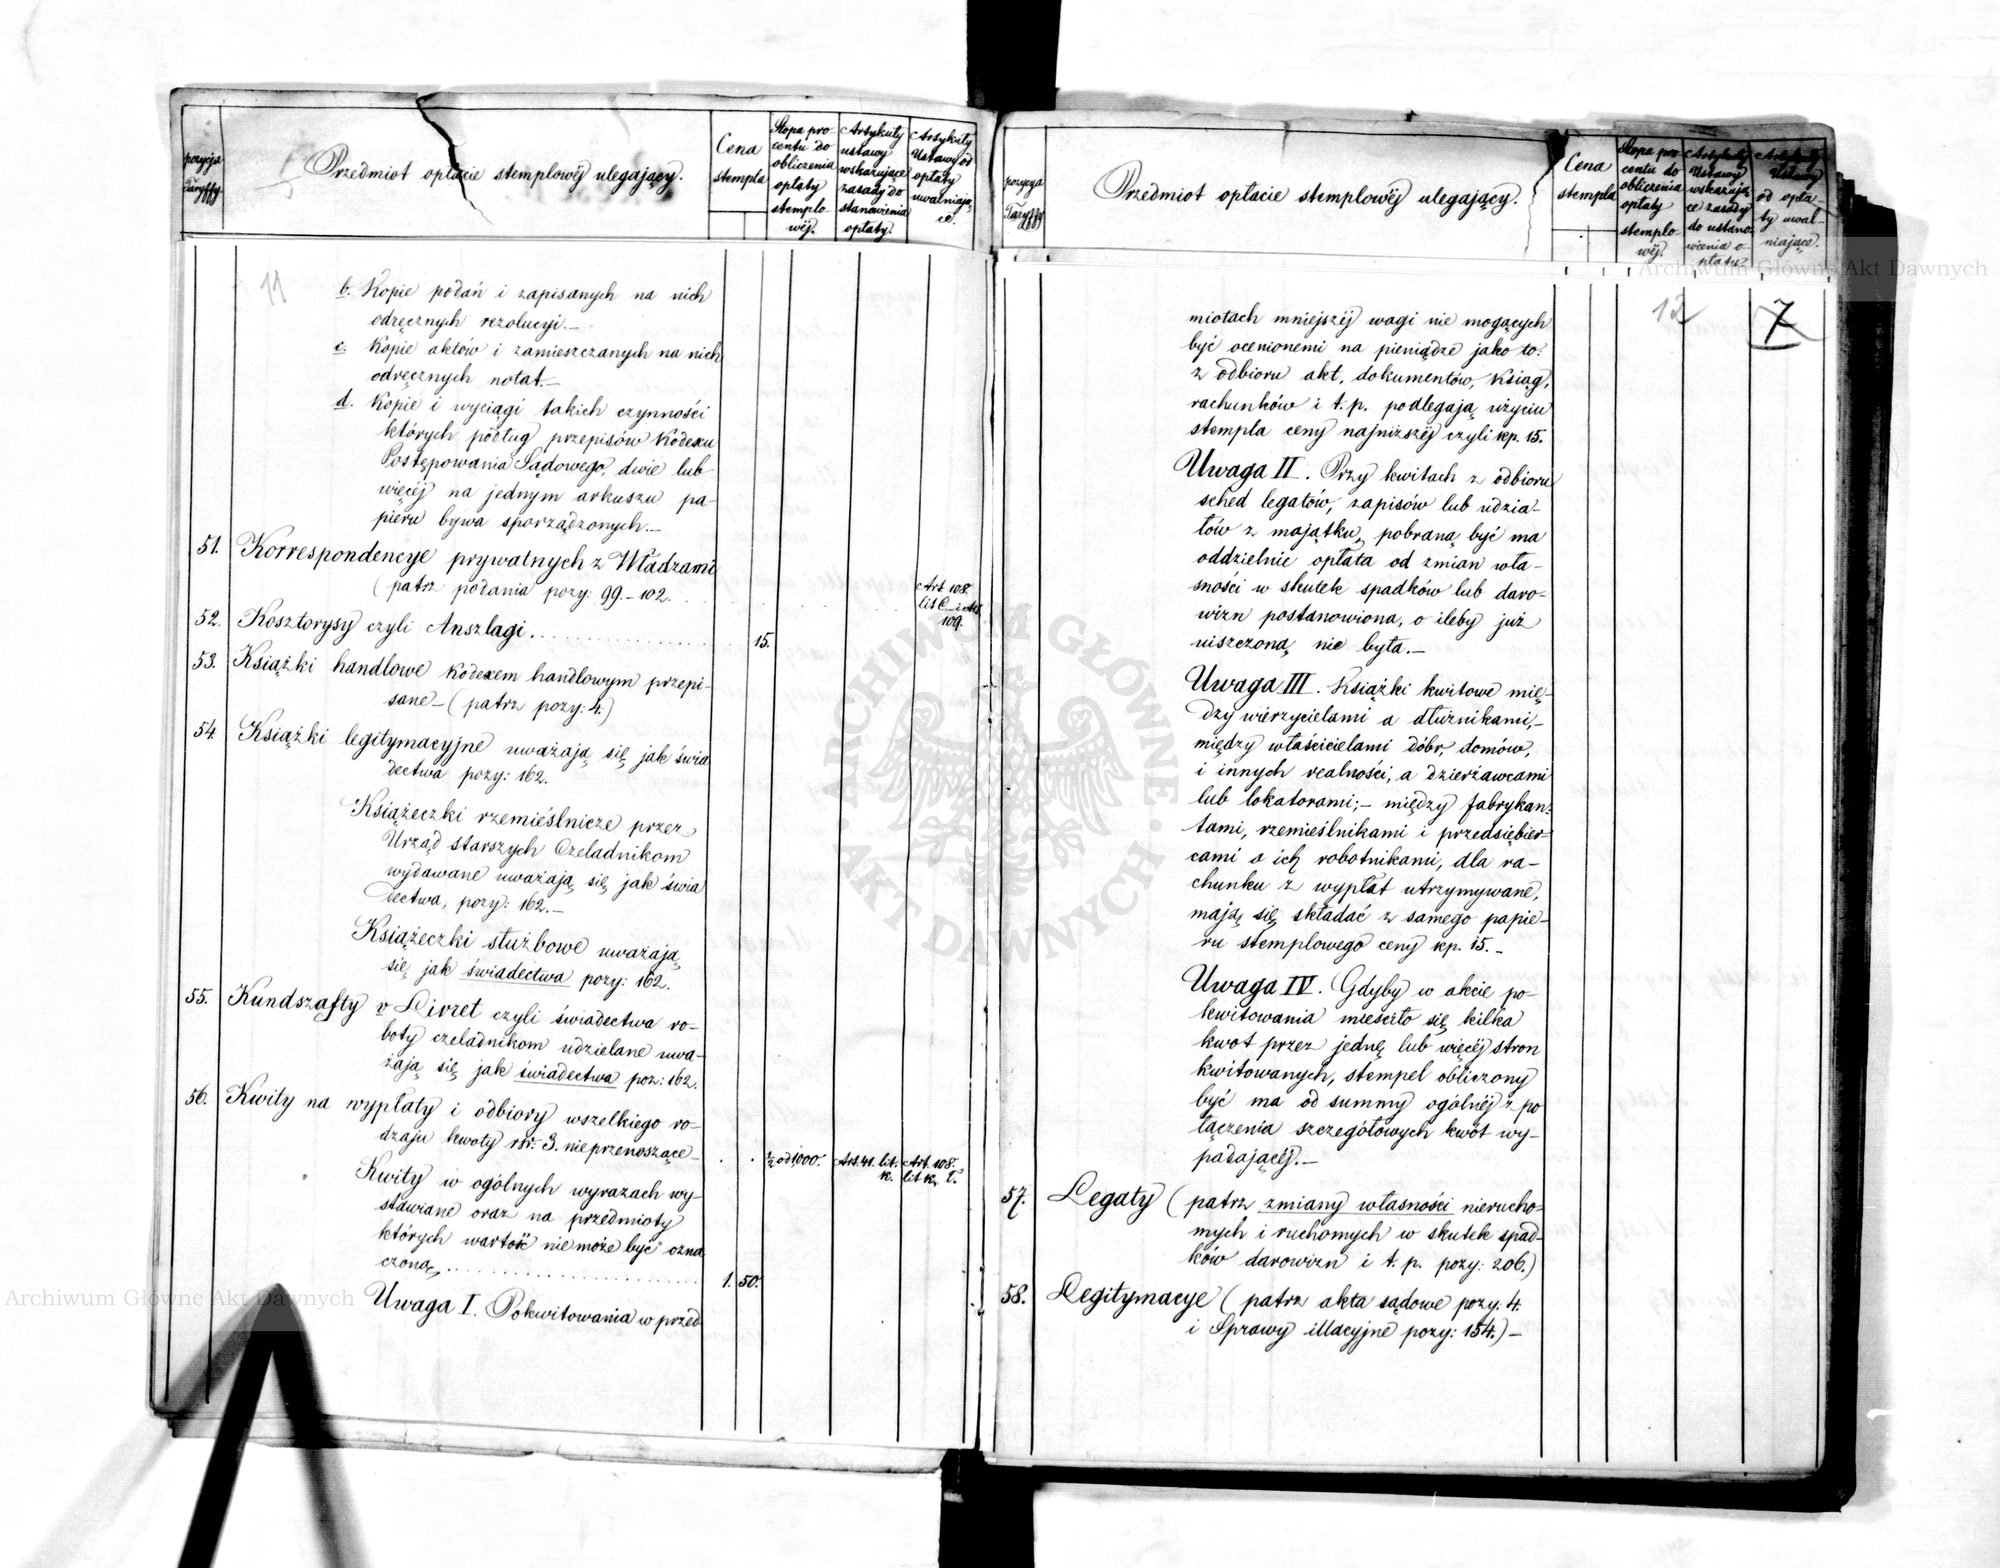 pozycja
Taryffy
Przedmiot opłacie stemplowéj ulegający.
Cena
stempla
Stopa pro-
centu do
obliczenia
opłaty
stemplo-
wéj.
Artykuły
ustawy
wskazujące
zasady do
stanowienia
opłaty.
Artykuły
Ustawy od
opłaty
uwalniają-
ce.
11
b. Kopie podań i zapisanych na nich
odręcznych rezolucyi.—
c. Kopie aktów i zamieszczanych na nich
odręcznych notat.—
d. Kopie i wyciągi takich czynności
których podług przepisów Kodexu
Postępowania Sądowego, dwie lub
więcéj na jednym arkuszu pa-
pieru bywa sporządzonych.—
51. Korrespondencye prywatnych z Władzami
(patrz podania pozy: 99.–102.
Art. 108.
lit C. i Art.
109.
52. Kosztorysy czyli Anszlagi . . . . . . . . . . 15.
53. Książki handlowe Kodexem handlowym przepi-
sane – (patrz pozy: 4.)
54. Książki legitymacyjne uważają się jak świa
dectwa pozy: 162.
Książeczki rzemieślnicze przez
Urząd starszych Czeladnikom
wydawane uważają się jak świa
dectwa, pozy: 162.—
Książeczki służbowe uważają
się jak świadectwa pozy: 162.
55. Kundszafty v Livret czyli świadectwa ro-
boty czeladnikom udzielane uwa-
żają się jak świadectwa poz: 162.
56. Kwity na wypłaty i odbiory wszelkiego ro-
dzaju kwoty rsr: 3. nieprzenoszące – . . ½ od 1000. Art. 41. lit. Art. 108.
k. lit k, T.
Kwity w ogólnych wyrazach wy-
stawiane oraz na przedmioty
których wartość nie może być ozna
czoną . . . . . . . . . . 1. 50.
Uwaga I. Pokwitowania w przed
pozycya
Taryffy
Przedmiot opłacie stemplowéj ulegający.
Cena
stempla
Stopa pro-
centu do
obliczenia
opłaty
stemplo-
wéj.
Artykuły
Ustawy
wskazują-
ce zasady
do ustano-
wienia o-
płaty.
Artykuły
Ustawy
od opła-
ty uwal-
niające.
12 7
miotach mniejszéj wagi nie mogących
być ocenionemi na pieniądze jako to:
z odbioru akt, dokumentów, Ksiąg,
rachunków i t. p. podlegają użyciu
stempla ceny najniższéj czyli kp. 15.
Uwaga II. Przy kwitach z odbioru
sched legatów, zapisów lub udzia-
łów z majątku, pobraną być ma
oddzielnie opłata od zmian wła-
sności w skutek spadków lub daro-
wizn postanowiona, o ileby już
uiszczoną nie była.—
Uwaga III. Książki kwitowe mię-
dzy wierzycielami a dłużnikami,–
między właścicielami dóbr, domów,
i innych realności, a dzierżawcami
lub lokatorami;– między fabrykan-
tami, rzemieślnikami i przedsiębier-
cami a ich robotnikami, dla ra-
chunku z wypłat utrzymywane,
mają się składać z samego papie-
ru stemplowego ceny kp. 15.–
Uwaga IV. Gdyby w akcie po-
kwitowania mieściło się kilka
kwot przez jednę lub więcéj stron
kwitowanych, stempel obliczony
być ma od summy ogólnéj z po
łączenia szczegółowych kwót wy-
padającéj.—
57. Legaty (patrz zmiany własności nierucho-
mych i ruchomych w skutek spad-
ków darowizn i t. p. pozy: 206.)
58. Legitymacye (patrz akta sądowe pozy: 4.
i Sprawy illacyjne pozy: 154.)–
Archiwum Główne Akt Dawnych
Archiwum Główne Akt Dawnych
ARCHIWUM GŁÓWNE · AKT DAWNYCH ·